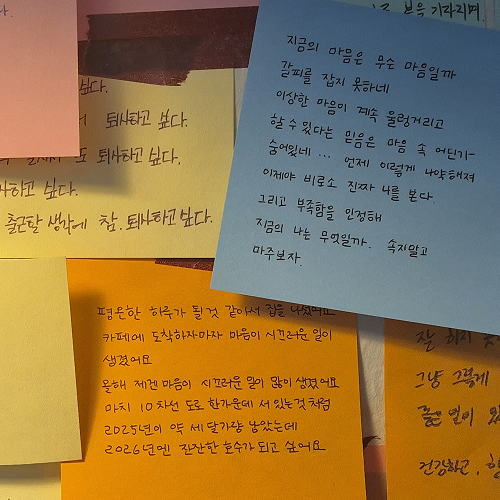 다.
본을 기다리며.
싶다.
퇴사하고 싶다.
또 퇴사하고 싶다.
하고 싶다.
출근할 생각에 참. 퇴사하고싶다.
지금의 마음은 무슨 마음일까
갈피를 잡지 못하네
이상한 마음이 계속 울렁거리고
할 수 있다는 믿음은 마음 속 어딘가-
숨어있네 ... 언제 이렇게 나약해져
이제야 비로소 진짜 나를 본다.
그리고 부족함을 인정해
지금의 나는 무엇일까. 속지말고
마주보자.
평온한 하루가 될것 같아서 집을 나섰어요
카페에 도착하자마자 마음이 시끄러운 일이
생겼어요
올해 제겐 마음이 시끄러운 일이 많이 생겼어요
마치 10차선 도로 한가운데 서 있는것처럼
2025년이 약 세 달가량 남았는데
2026년엔 잔잔한 호수가 되고 싶어요
잘 하지
그냥 그렇게
좋은 일이
건강하고.